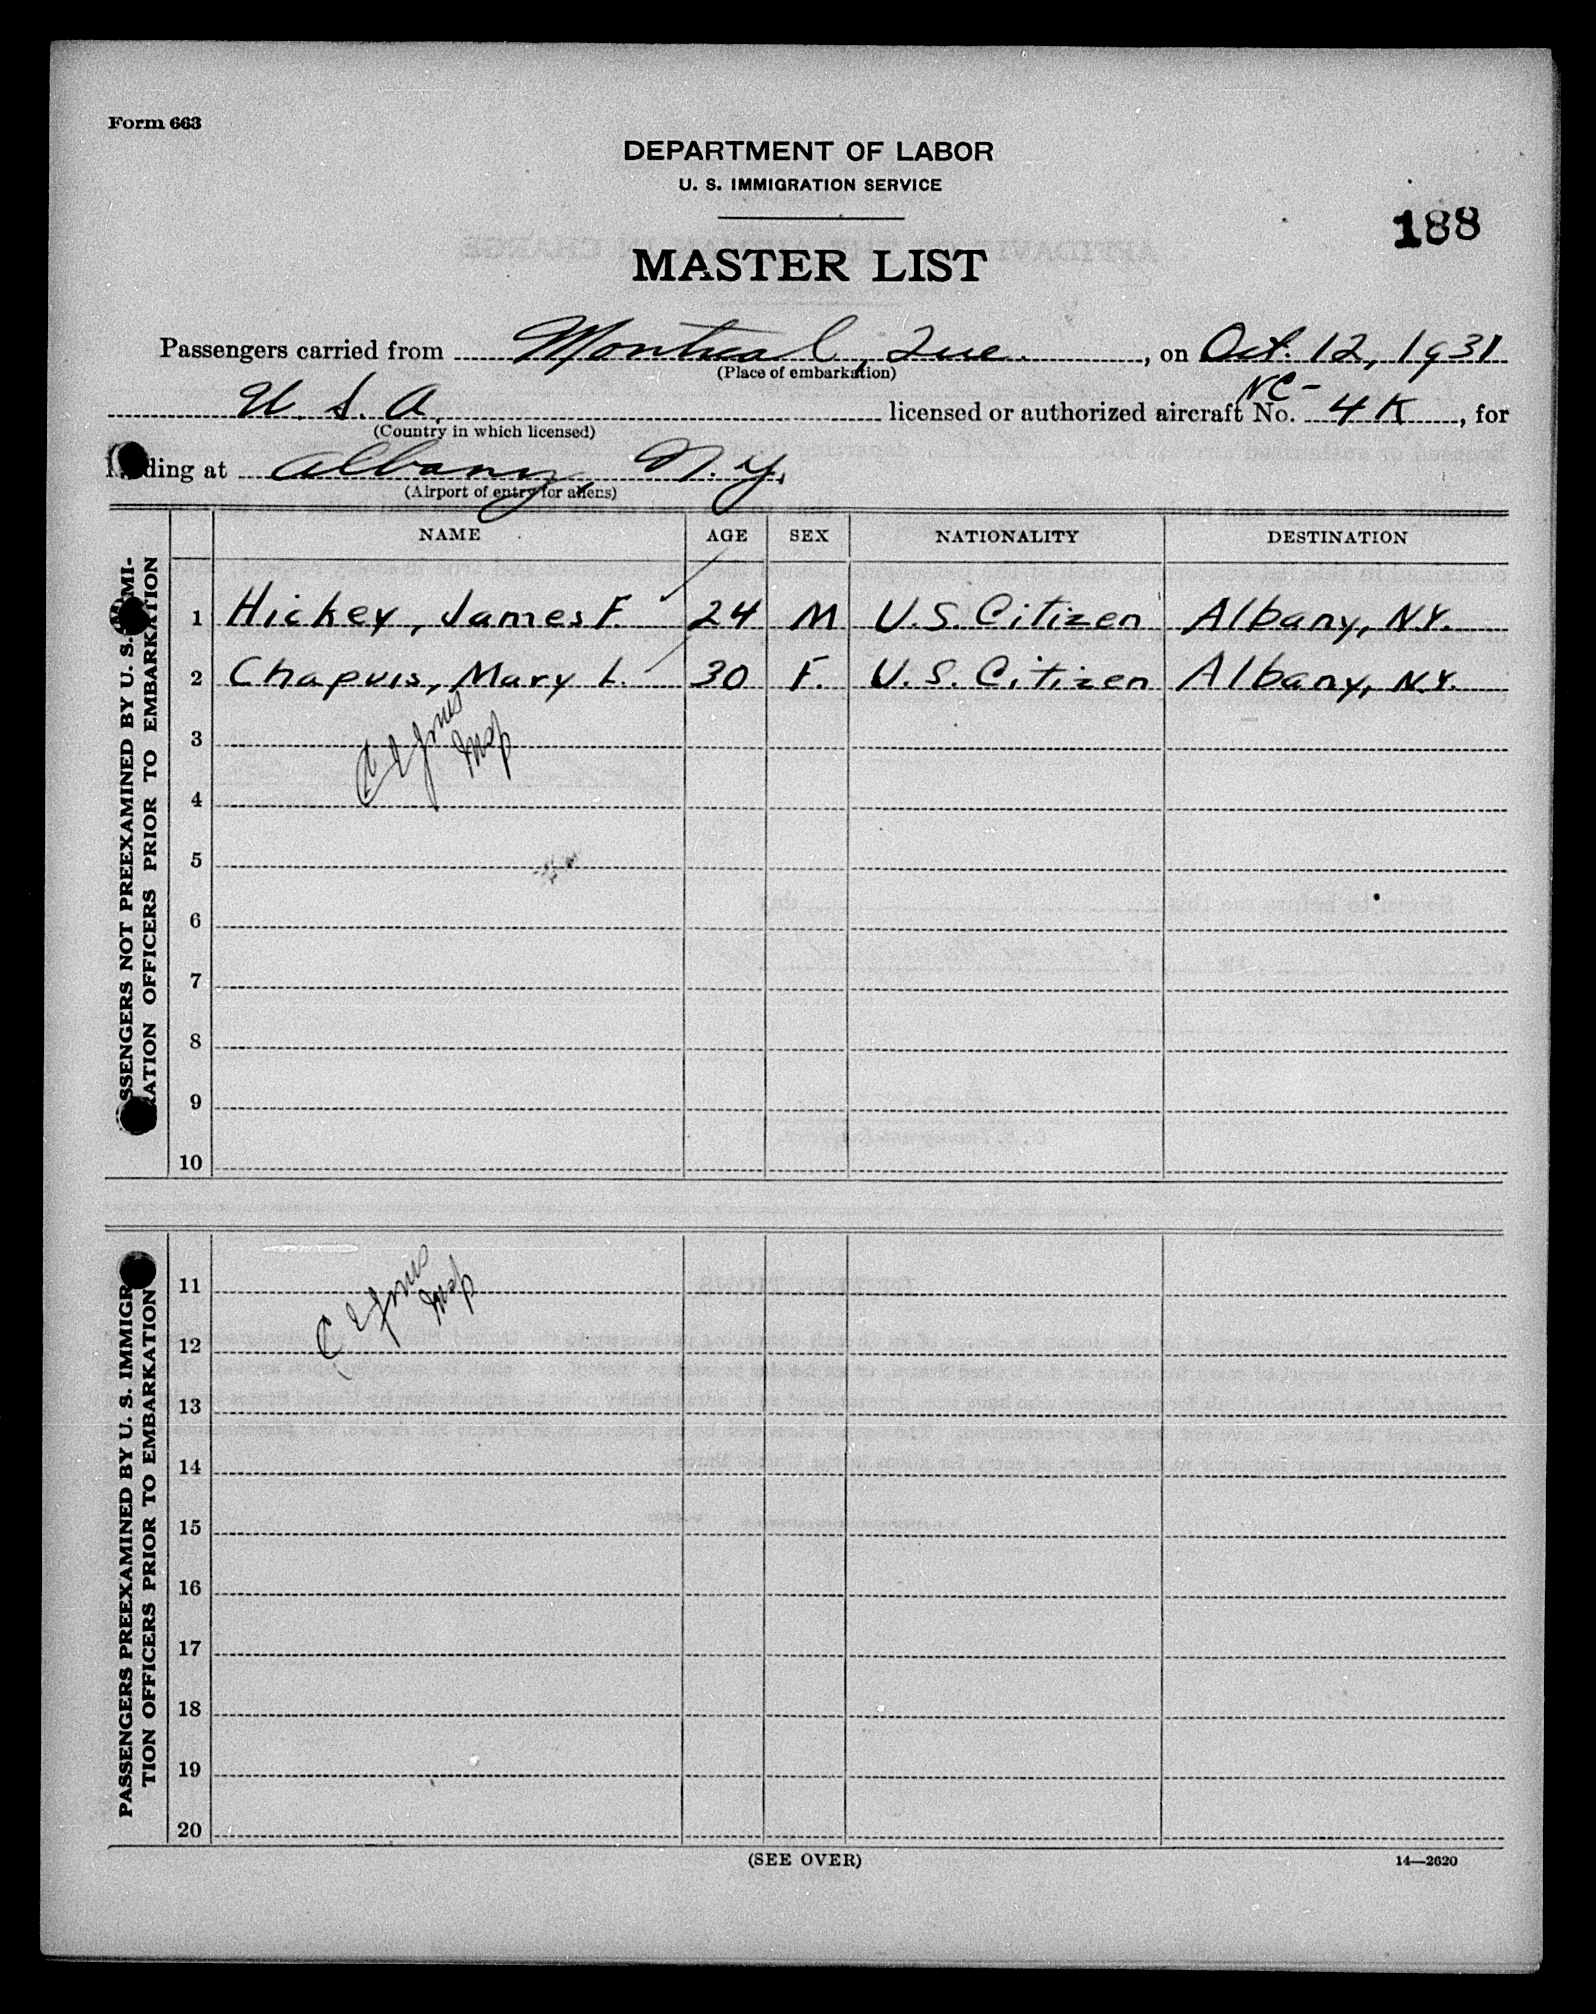 Form 663
DEPARTMENT OF LABOR
U. S. IMMIGRATION SERVICE
188
MASTER LIST
Passengers carried from Montreal, Que. , on Oct. 12, 1931
(Place of embarkation)
U. S. A. licensed or authorized aircraft No. NC-4K, for
(Country in which licensed)
ding at Albany N.Y.
(Airport of entry for aliens)
NAME AGE SEX NATIONALITY DESTINATION
SSENGERS NOT PREEXAMINED BY U. S. IMMI-
RATION OFFICERS PRIOR TO EMBARKATION
1 Hickey, James F. 24 M U.S. Citizen Albany, N.Y.
2 Chapuis, Mary L. 30 F. U.S. Citizen Albany, N.Y.
3
Insp
4
5
6
7
8
9
10
PASSENGERS PREEXAMINED BY U. S. IMMIGR
TION OFFICERS PRIOR TO EMBARKATION
11
Insp
12
13
14
15
16
17
18
19
20
(SEE OVER)
14—2620